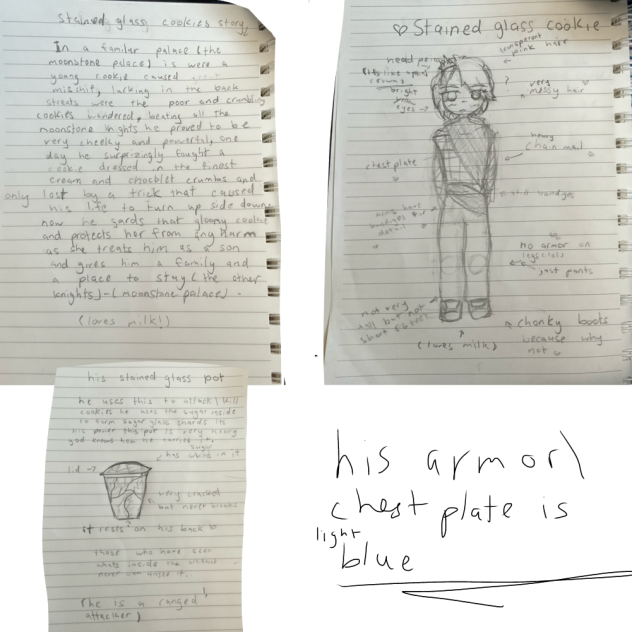 Stained glass cookies story
In a familar palace (the
moonstone palace) is were a
young cookie caused
mishif, lurking in the back
streats were the poor and crumbling
cookies wandered, beating all the
moonstone knights he proved to be
very cheeky and powerful, one
day he surprizingly fought a
cookie dressed in the finest
cream and choclet crumbs and
only lost by a trick that caused
his life to turn up side down,
now he gards that gloomy cookie
and protects her from any harm
as she treats him as a son
and gives him a family and
a place to stay (the other
knights)-(moonstone palace).
(loves milk!)
♡ Stained glass cookie
transperent
pink hair
head
crown)
bright
eyes →
?
very
messy hair
heavy
chain mail
chest plate
bandges for
detail
No armor on
legs (lol)
just pants
not very
tall but not
short
(loves milk)
chonky boots
because why
not
his stained glass pot
he uses this to attack\kill
cookies he uses the sugar inside
to form sugar glass shards its
his power this pot is very heavy
god knows how he carries it,
sugar
has
in it
lid →
very cracked
but never breaks
it rests on his back ♡
those who have seen
whats inside the
never
it.
(he is a ranged
attacker)
his armor\
chest plate is
light
blue